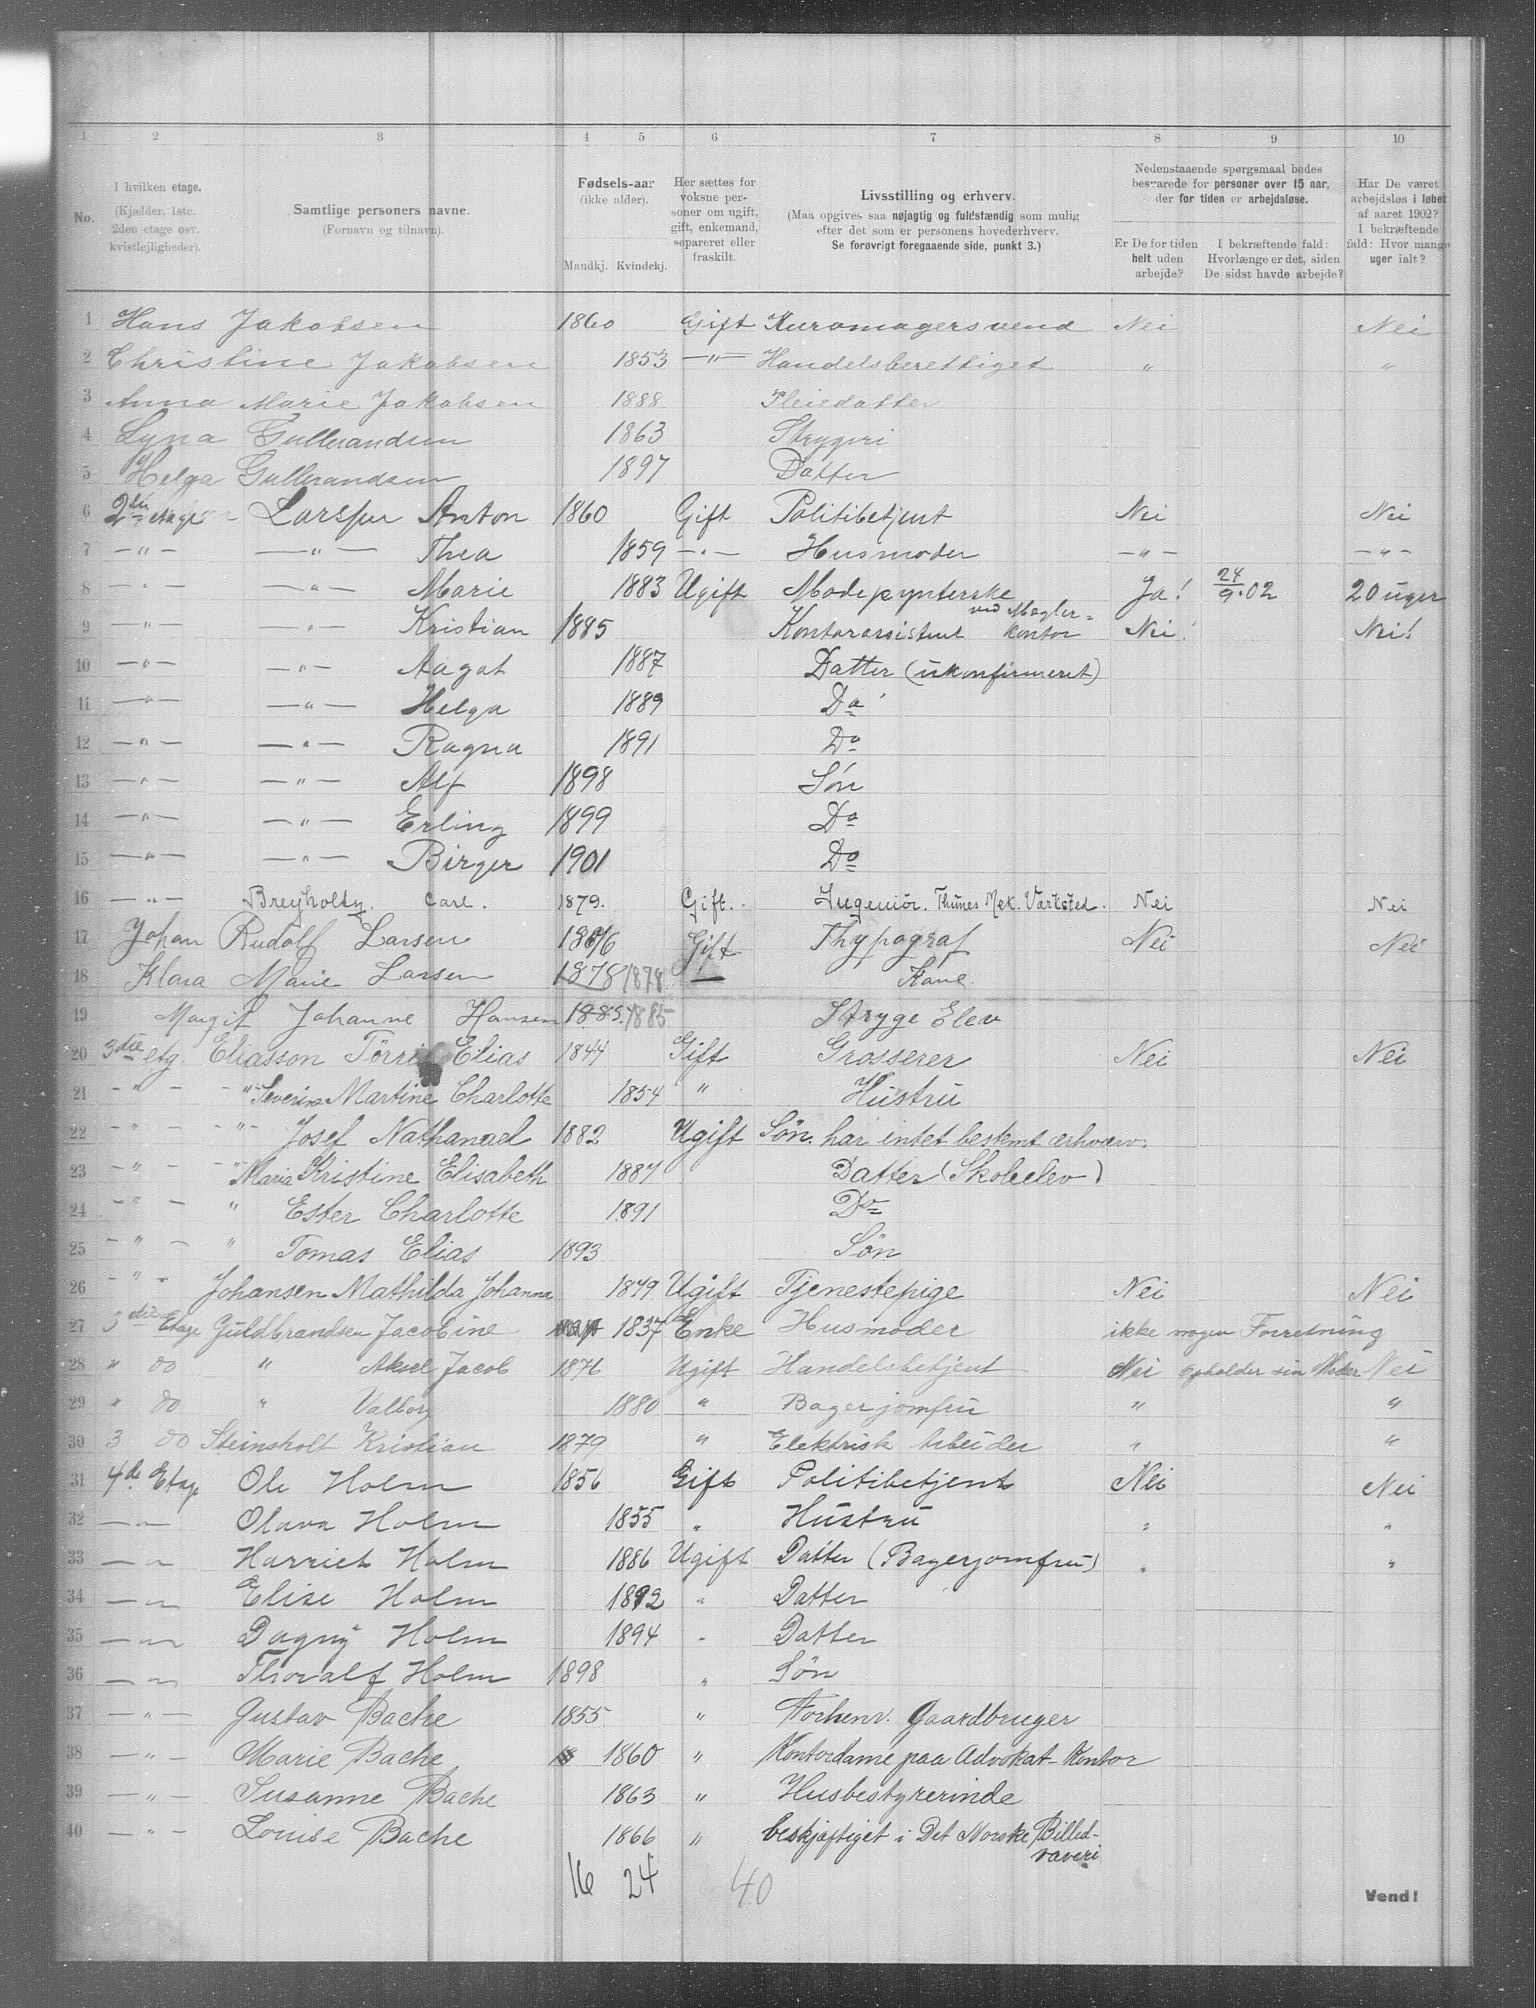 1 2 3 4 5 6 7 8 9 10
No.
I hvilken etage.
(Kjælder, 1ste.
2den etage osv.
kvistlejligheder).
Samtlige personers navne.
(Fornavn og tilnavn).
Fødsels-aar
(ikke alder).
Mandkj. Kvindekj.
Her sættes for
voksne per-
soner om ugift,
gift, enkemand,
separeret eller
fraskilt.
Livsstilling og erhverv.
(Maa opgives saa nøjagtig og fuldstændig som mulig
efter det som er personens hovederhverv.
Se forøvrigt foregaaende side, punkt 3.)
Nedenstaaende spørgsmaal bedes
besvarede for personer over 15 aar,
der for tiden er arbejdsløse.
Er De for tiden
helt uden
arbejde?
I bekræftende fald:
Hvorlænge er det, siden
De sidst havde arbejde?
Har De været
arbejdsløs i løbet
af aaret 1902?
I bekræftende
fald: Hvor mange
uger ialt?
1 Hans Jakobsen 1860 Gift Kuromagersvend Nei Nei
2 Christine Jakobsen 1853 —"— Handelsberettiget " "
3 Anna Marie Jakobsen 1888 Pleiedatter
4 Lyna Gulbrandsen 1863 Strygeri
5 Helga Gulbrandsen 1897 Datter
6 2den etage Larssen Anton 1860 Gift Politibetjent Nei Nei
7 —"— —"— Thea 1859 —"— Husmoder —"— —"—
8 —"— —"— Marie 1883 Ugift Modepynterske Ja! 24/9.02 20 uger
9 —"— —"— Kristian 1885 Kontorassistent ved Mægler= kontor Nei! Nei!
10 —"— —"— Aagot 1887 Datter (ukonfirmeret)
11 —"— —"— Helga 1889 Do
12 —"— —"— Ragna 1891 Do
13 —"— —"— Alf 1898 Søn
14 —"— —"— Erling 1899 Do
15 —"— —"— Birger 1901 Do
16 —"— Breyholtz. Carl. 1879. Gift. Ingeniör. Thunes Mek. Værksted. Nei Nei
17 Johan Rudolf Larsen 1876 Gift Thypograf Nei Nei
18 Klara Marie Larsen 1878 1878 — Kone.
19 Margit Johanne Hansen 1885. 1885 Stryge Elev
20 3die etg. Eliasson Törris Elias 1844 Gift Grosserer Nei Nei
21 " " Severine Martine Charlotte 1854 " Hustru
22 " " Josef Nathanael 1882 Ugift Søn. har intet bestemt erhverv.
23 " " Maria Kristine Elisabeth 1887 Datter (Skoleelev)
24 " " Ester Charlotte 1891 Do
25 " " Tomas Elias 1893 Søn
26 " Johansen Mathilda Johanna 1849 Ugift Tjenestepige Nei Nei
27 3die Etage Guldbrandsen Jacobine 1837 Enke Husmoder ikke nogen Forretning
28 " do " Aksel Jacob 1876 Ugift Handelsbetjent Nei opholder sin Moder Nei
29 " do " Valborg 1880 " Bagerjomfru " "
30 3 do Steinsholt Kristian 1879 " Elektrisk Arbeider " "
31 4de Etage Ole Holm 1856 Gift Politibetjent Nei Nei
32 —"— Olava Holm 1855 " Hustru " "
33 —"— Harriet Holm 1886 Ugift Datter (Bagerjomfru) " "
34 —"— Elise Holm 1892 " Datter
35 —"— Dagny Holm 1894 " Datter
36 —"— Thoralf Holm 1898 " Søn
37 —"— Gustav Bache 1855 " Forhenv. Gaardbruger
38 —"— Marie Bache 1860 " Kontordame paa Advokat-Kontor
39 —"— Susanne Bache 1863 " Husbestyrerinde
40 —"— Louise Bache 1866 " beskjæftiget i Det Norske Billed-
væveri
16 24 40
Vend!